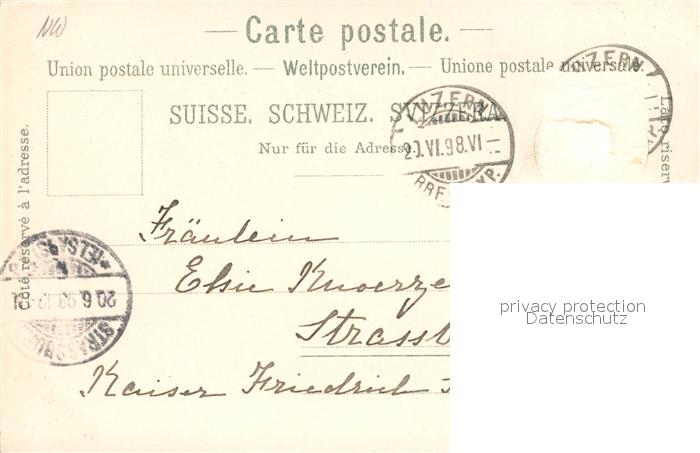 NW
— Carte postale. —
Union postale universelle. — Weltpostverein. — Unione postale universale.
SUISSE. SCHWEIZ. SVIZZERA
Nur für die Adresse.
Côté réservé à l'adresse.
LUZERN
20.VI.98.VI
BRF. EXP.
LUZERN
Lato riserv
20.6.98
STRASSBU
Fräulein
Elsie Knoerze
Strassb
Kaiser Friedrich
privacy protection
Datenschutz